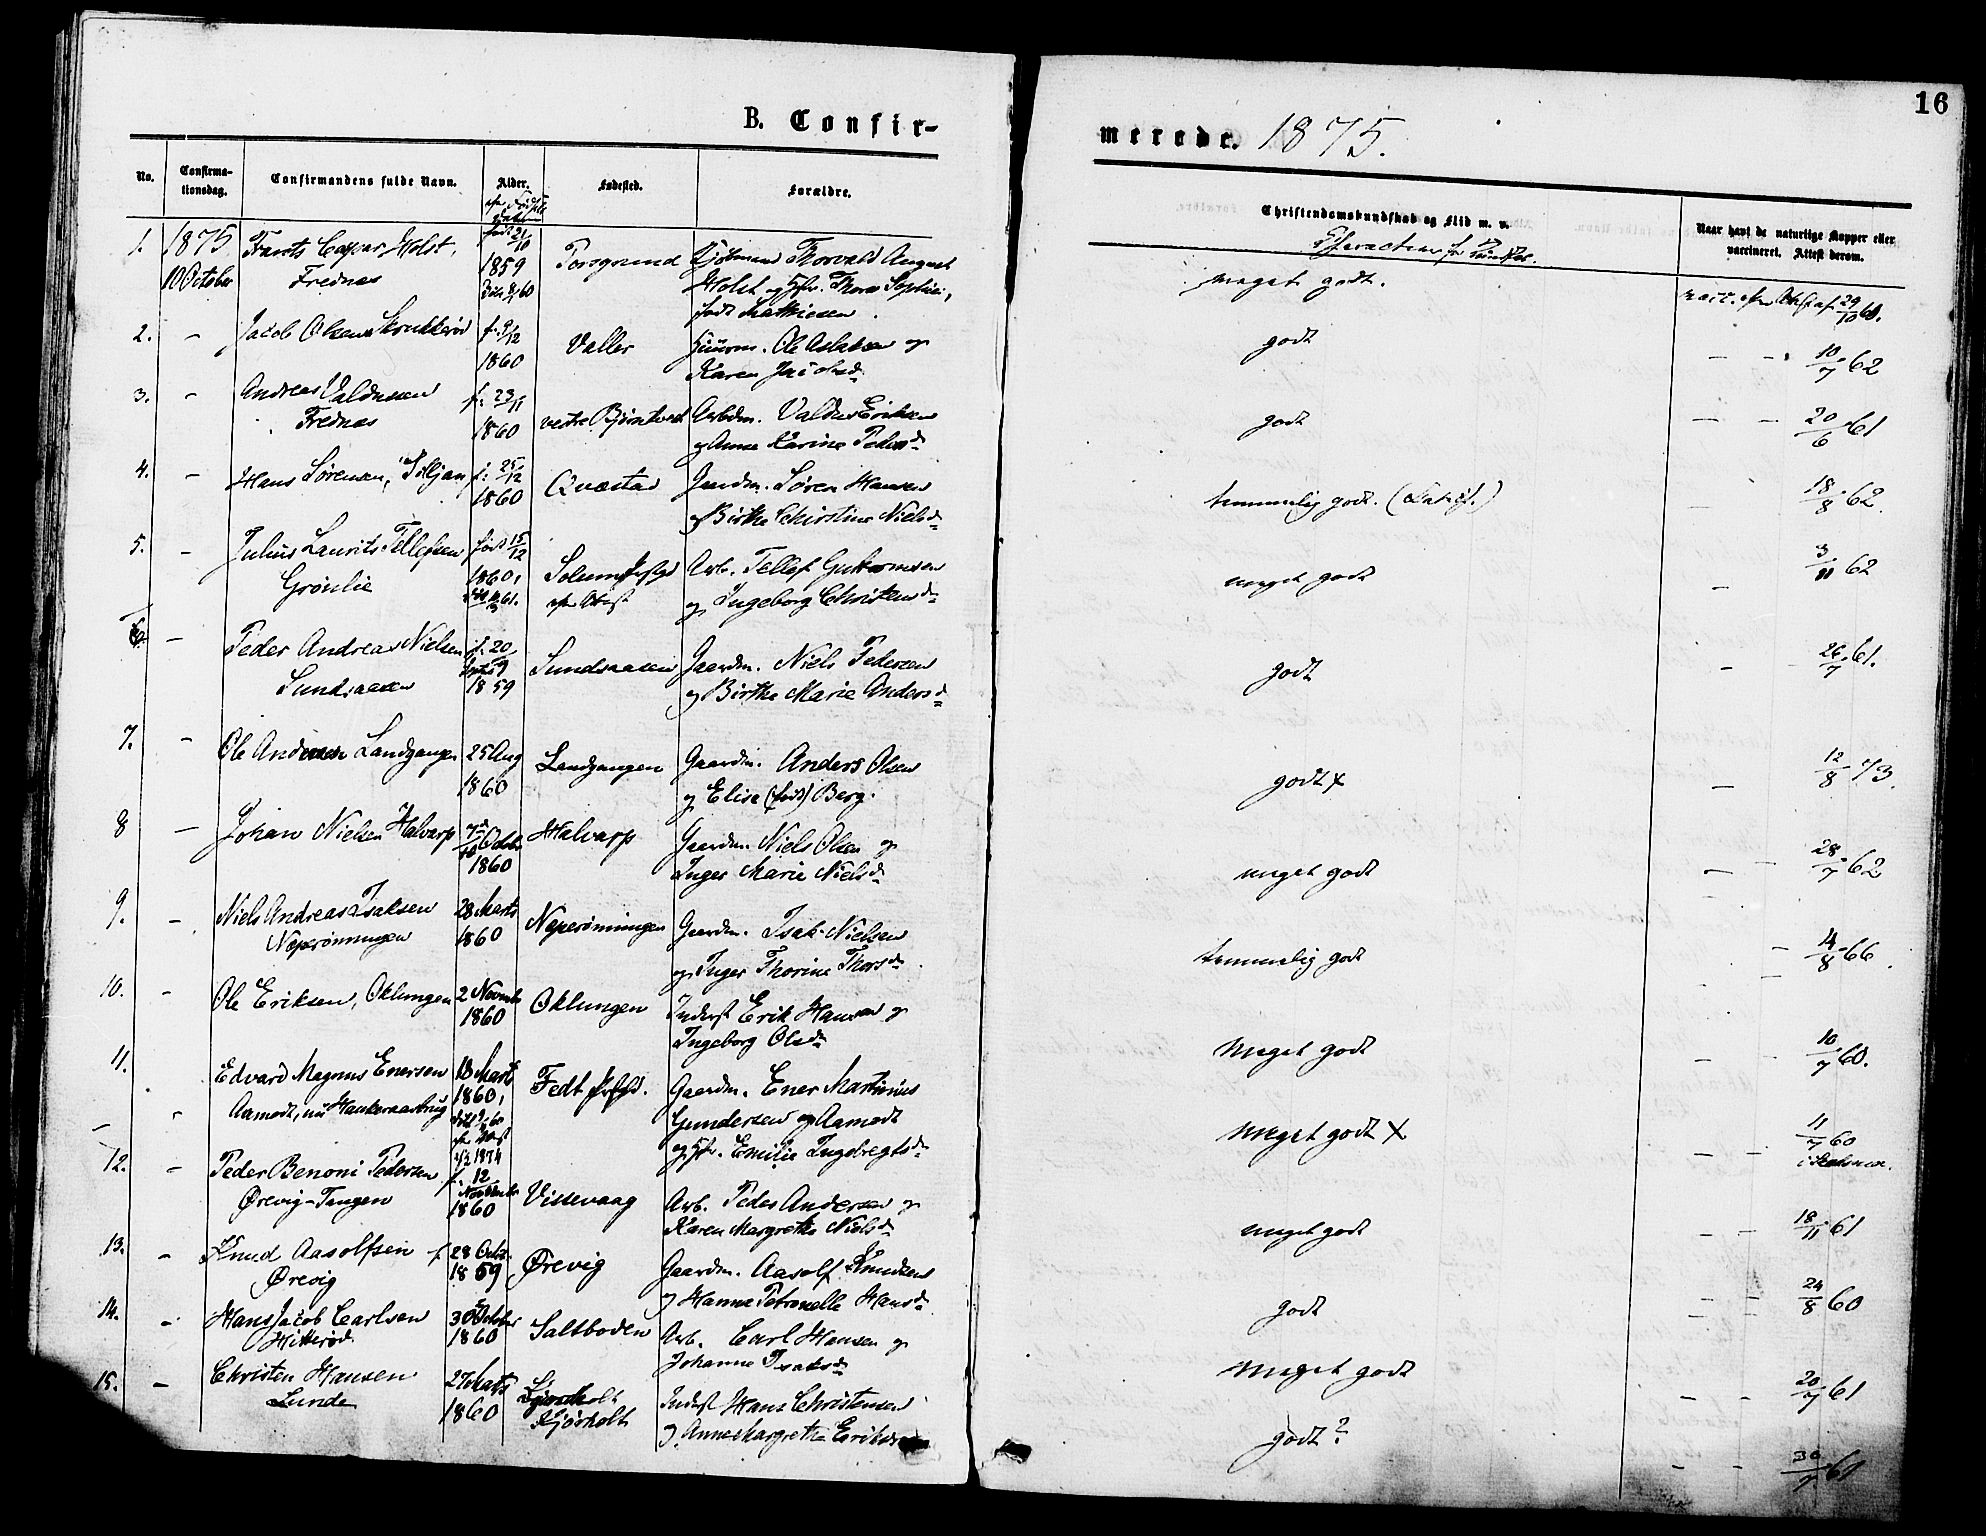 16
B. Confir-
merede. 1875.
No.
Confirma-
tionsdag.
Confirmandens fulde Navn.
Alder.
Fødested.
Forældre.
Christendomskundskab og Flid m. v.
Naar havt de naturlige Kopper eller
vaccineret. Attest derom.
1. 1875 Frants Caspar Holst, født 21/10 Porsgrund Thorvald August
10 October Frednæs 1859 Holst og Thora Sophie,
60 født Mathiesen
meget godt. 29/10 60.
2. - Jacob Olsen Skrukkerød f. 9/12 Valler Ole Aslaksen og
1860 Karen Jacobsd.
godt - - 10/7 62
3. - Andreas Valdusen f. 23/11 vestre Bjørntved Arbdm. Valdus Eriksen
Frednæs 1860 og Anne Karine Pedersd.
godt - - 20/6 61
4. - Hans Sørensen, f. 25/12 Qvæstad Gaardm. Søren Hansen
1860 og Birthe Christine Nielsd.
temmelig godt. - 18/8 62.
5. - Julius Laurits Tellefsen født 15/12 Solum Arb. Tellef Guttormsen
Grønlie 1860, og Ingeborg Christensd.
61.
meget godt - 3/11 62
6. - Peder Andreas Nielsen f. 20 Sundsaasen Gaardm. Niels Pedersen
Sundsaasen 1859 og Birthe Marie Andersd.
godt - 26/7 61.
7. - Ole Andersen Landgangen 25 Aug Landgangen Gaardm. Anders Olsen
1860 og Elise (født) Berg.
godt x - 12/8 73.
8 - Johan Nielsen Halvarp Halvarp Gaardm. Niels Olsen og
1860 Inger Marie Nielsd.
meget godt - - 28/7 62
9. - Niels Andreas Isaksen 28 Marts Neperønningen Gaardm. Isak Nielsen
Neperønningen 1860 og Inger Thorine Thorsd.
temmelig godt - 14/8 66
10. - Ole Eriksen, Oklungen 2 Novmbr Oklungen Inderst Erik Hansen og
1860 Ingeborg Olsd.
Meget godt - - 10/7 60.
11. Edvard Magnus Enersen 13 Marts Gaardm. Ener Martinius
Aamodt, nu 1860, Gundersen Aamodt
1874 og Emilie Ingebregtsd.
Meget godt x - - 11/7 60
12. - Peder Benoni Pedersen f. 12 Vissevaag Arb. Peder Andersen og
Ørevig-Tangen Novembr Karen Margrethe Nielsd.
1860
meget godt - - 18/11 61
13. - Knud Aasolfsen f. 28 Octr. Ørevig Gaardm. Aasolf Knudsen
Ørevig 1859 og Hanne Petronelle Hansd.
godt - - 24/8 60
14. - Hans Jacob Carlsen 30 October Saltboden Arb. Carl Hansen og
Hitterød 1860 Johanne Isaksd.
Meget godt - - 20/7 61
15. - Christen Hansen 27 Marts Inderst Hans Christensen
Lunde 1860 Kjørholt og Anne Margrethe
godt? - - 30/7 61